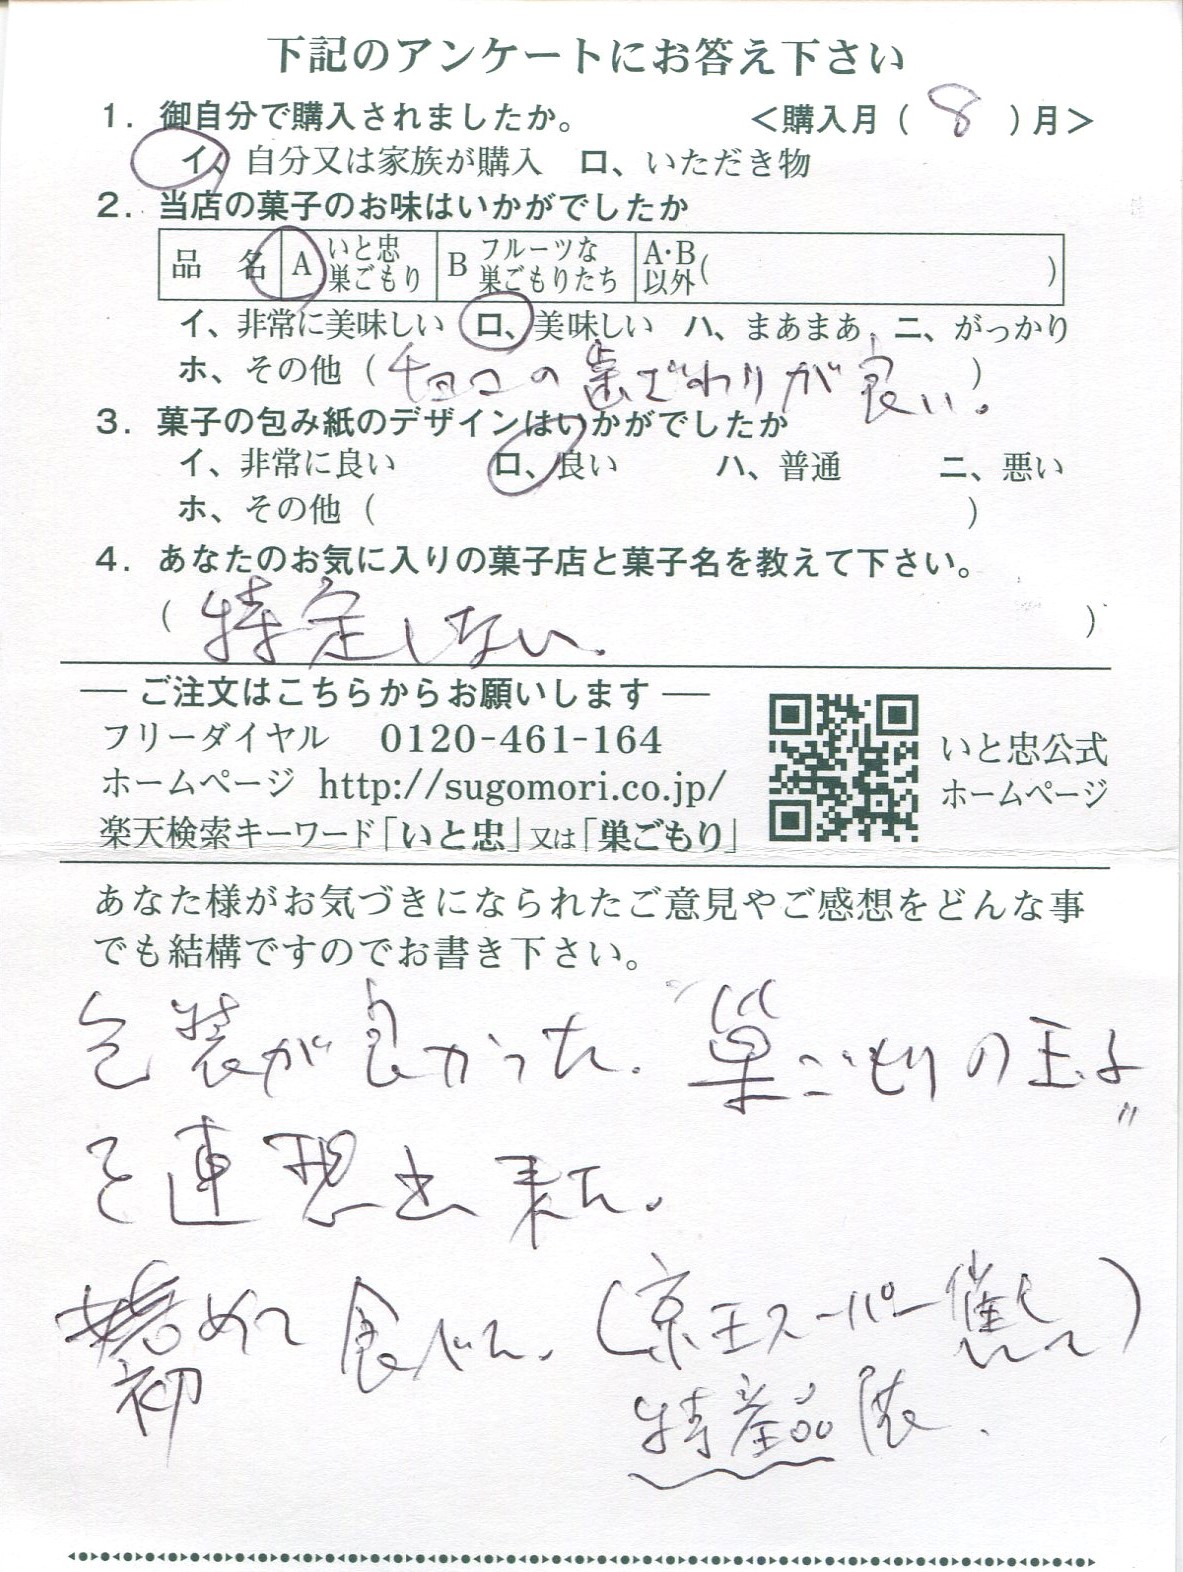 下記のアンケートにお答え下さい
1. 御自分で購入されましたか。 <購入月( 8 )月>
イ、自分又は家族が購入 ロ、いただき物
2. 当店の菓子のお味はいかがでしたか
品 名 A いと忠巣ごもり B フルーツな巣ごもりたち A・B以外( )
イ、非常に美味しい ロ、美味しい ハ、まあまあ ニ、がっかり
ホ、その他( チョコの歯ざわりが良い。 )
3. 菓子の包み紙のデザインはいかがでしたか
イ、非常に良い ロ、良い ハ、普通 ニ、悪い
ホ、その他( )
4. あなたのお気に入りの菓子店と菓子名を教えて下さい。
( 特定しない。 )
― ご注文はこちらからお願いします ―
フリーダイヤル 0120-461-164
ホームページ http://sugomori.co.jp/
楽天検索キーワード「いと忠」又は「巣ごもり」
いと忠公式
ホームページ
あなた様がお気づきになられたご意見やご感想をどんな事
でも結構ですのでお書き下さい。
包装が良かった。"巣ごもりの王子"
を連想出来た。
初めて食べた。(京王スーパー催し)
特産品展.